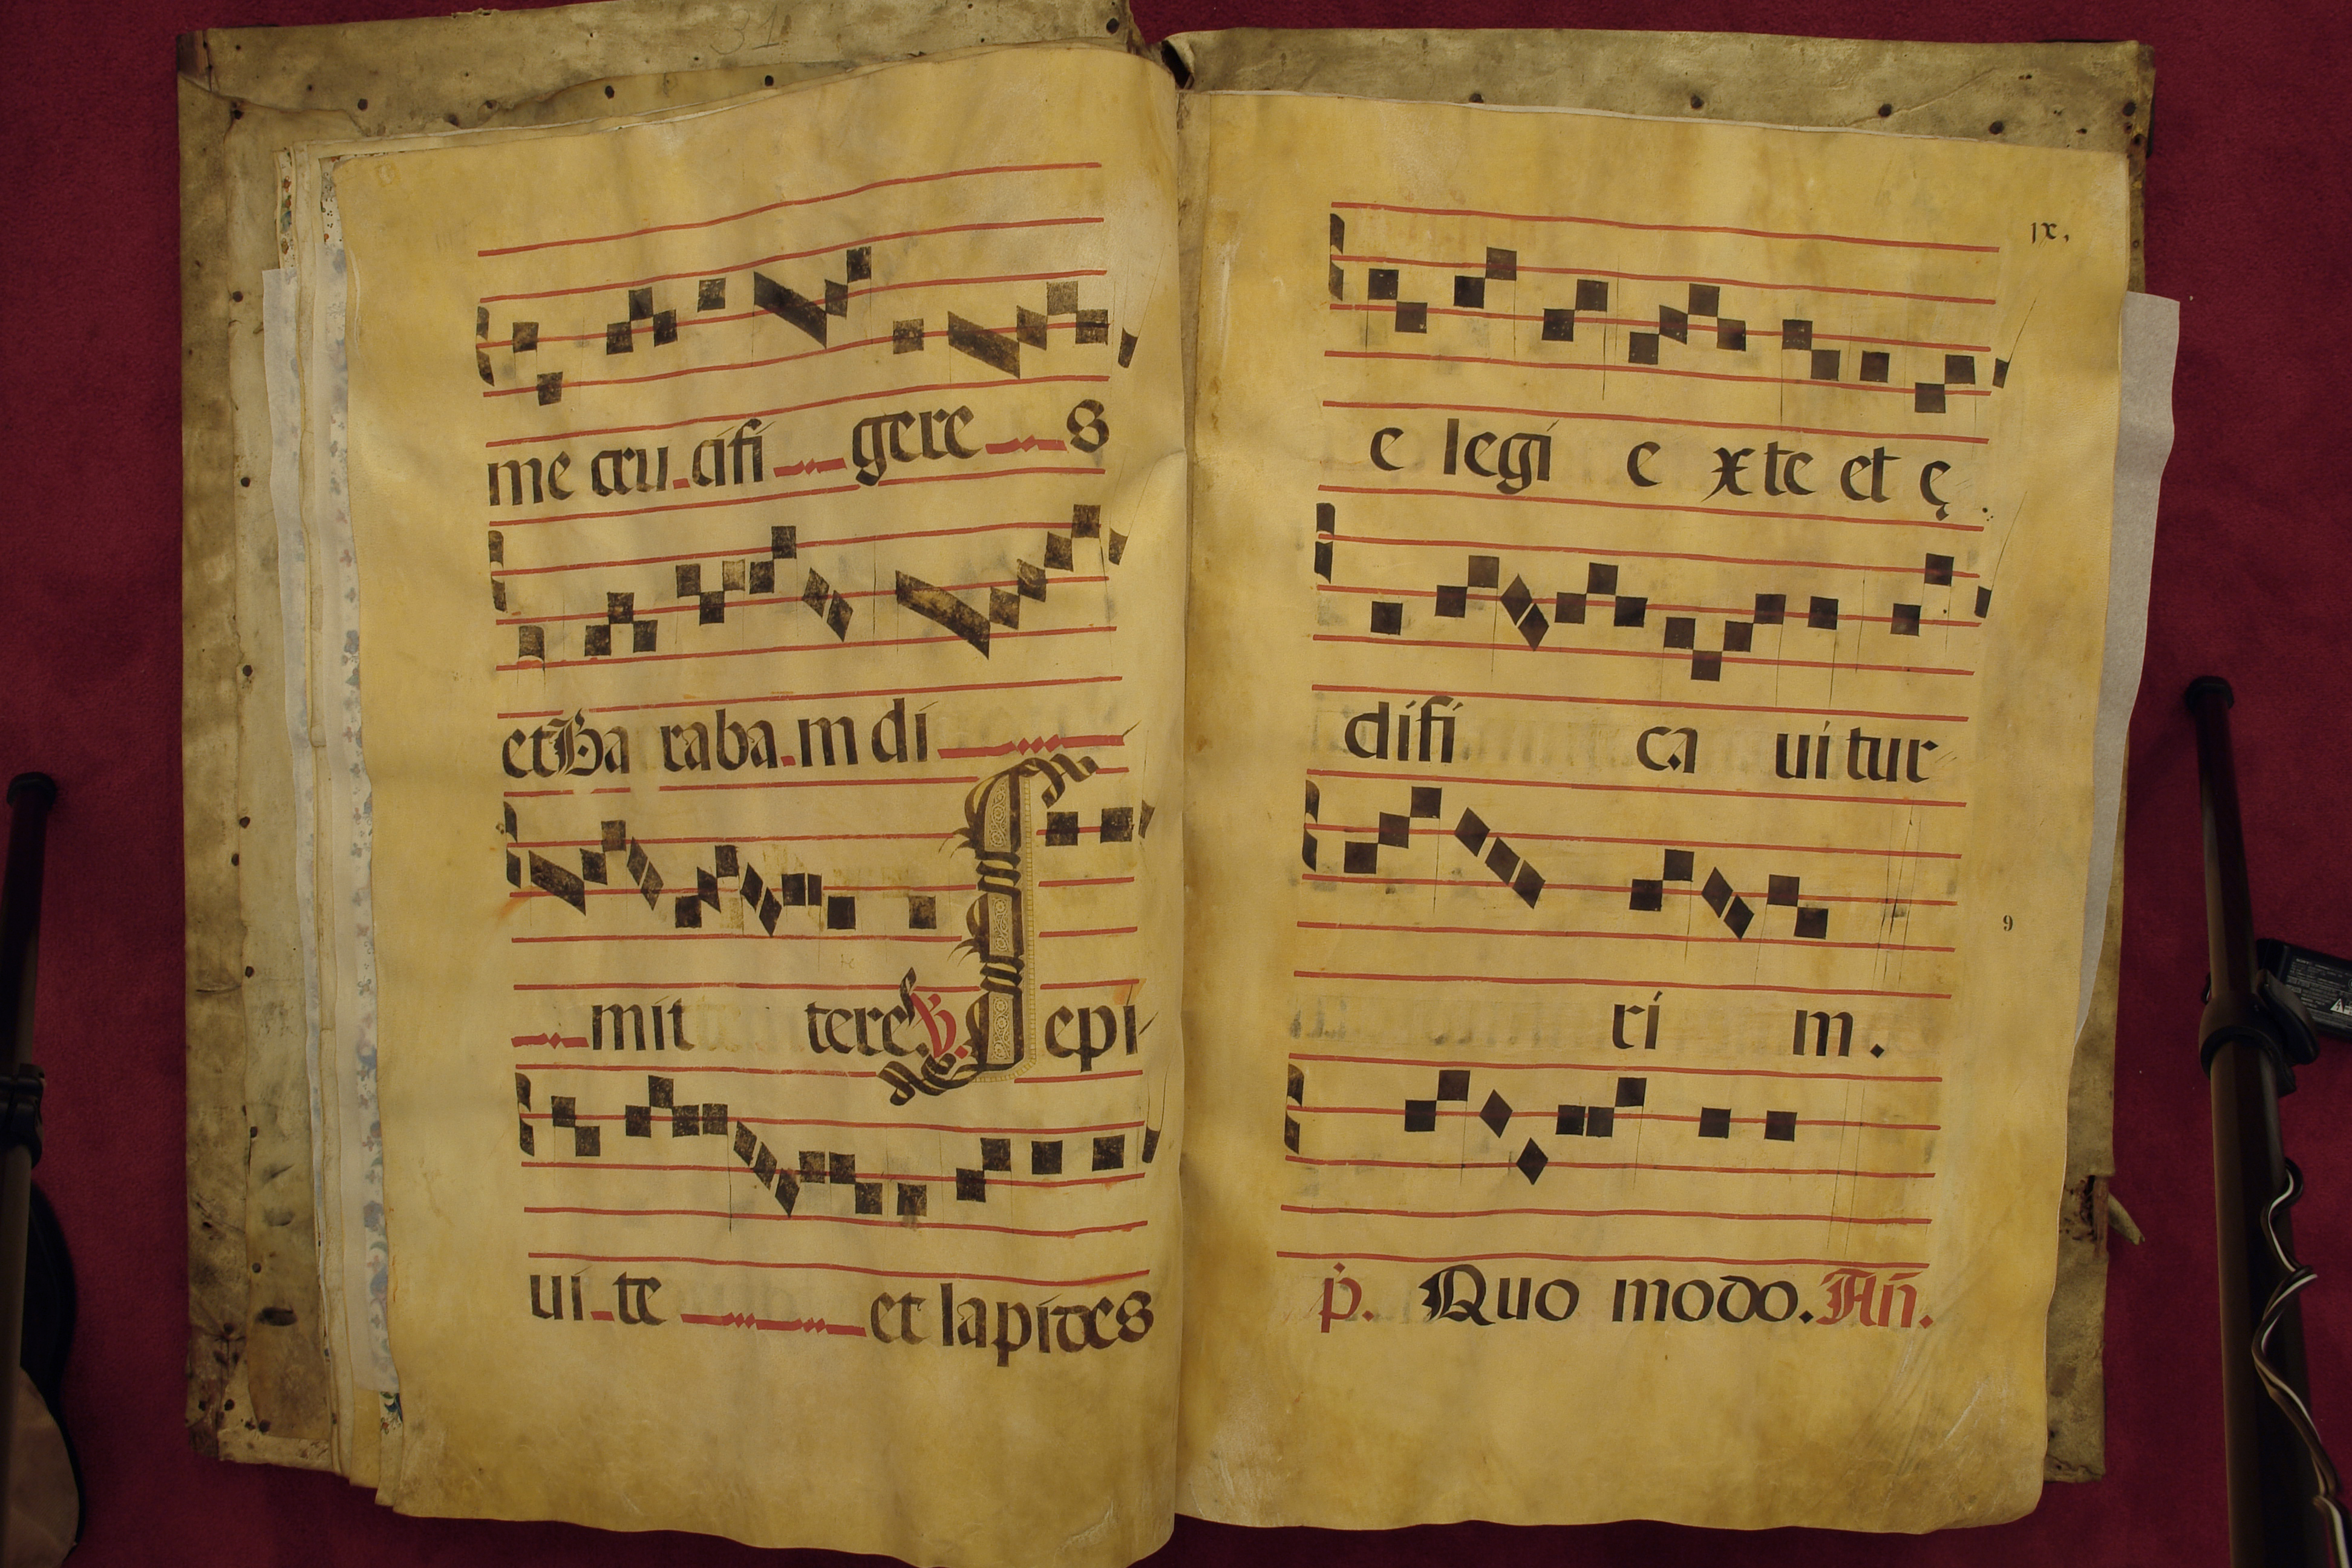 31
me cru.cifi gere s
et Ba raba.m di
mit tere ℣. S epi
ui te et lapides
ix,
e legi e x te et ę
difi ca uitur
9
ri m.
p. Quo modo. An.